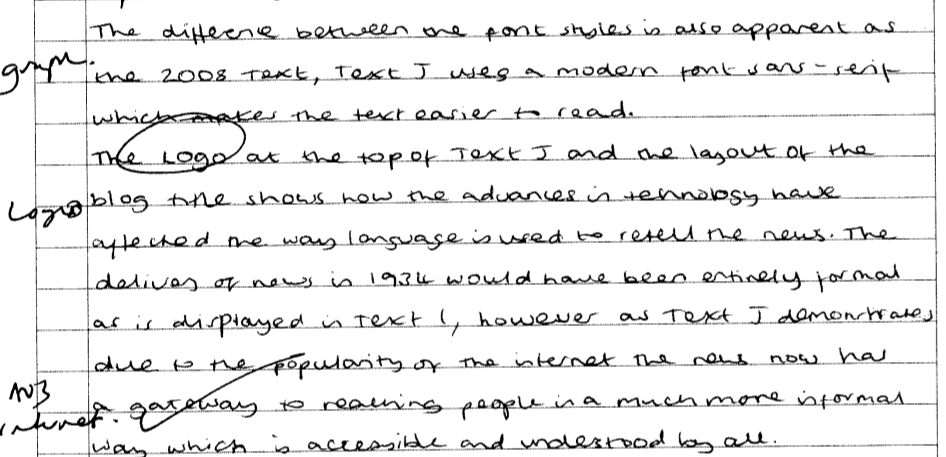 The differnce between the font styles is also apparent as
graph.
the 2008 Text, Text J uses a modern font sans-serif
which makes the text easier to read.
The Logo at the top of Text J and the layout of the
Logo blog title shows how the advances in tehnology have
affected the way language is used to retell the news. The
delivey of news in 1934 would have been entirely formal
as is displayed in Text I, however as Text J demonstrates,
due to the popularity of the internet the news now has
AO3
internet. a gateway to reaching people in a much more informal
way which is accessible and understood by all.